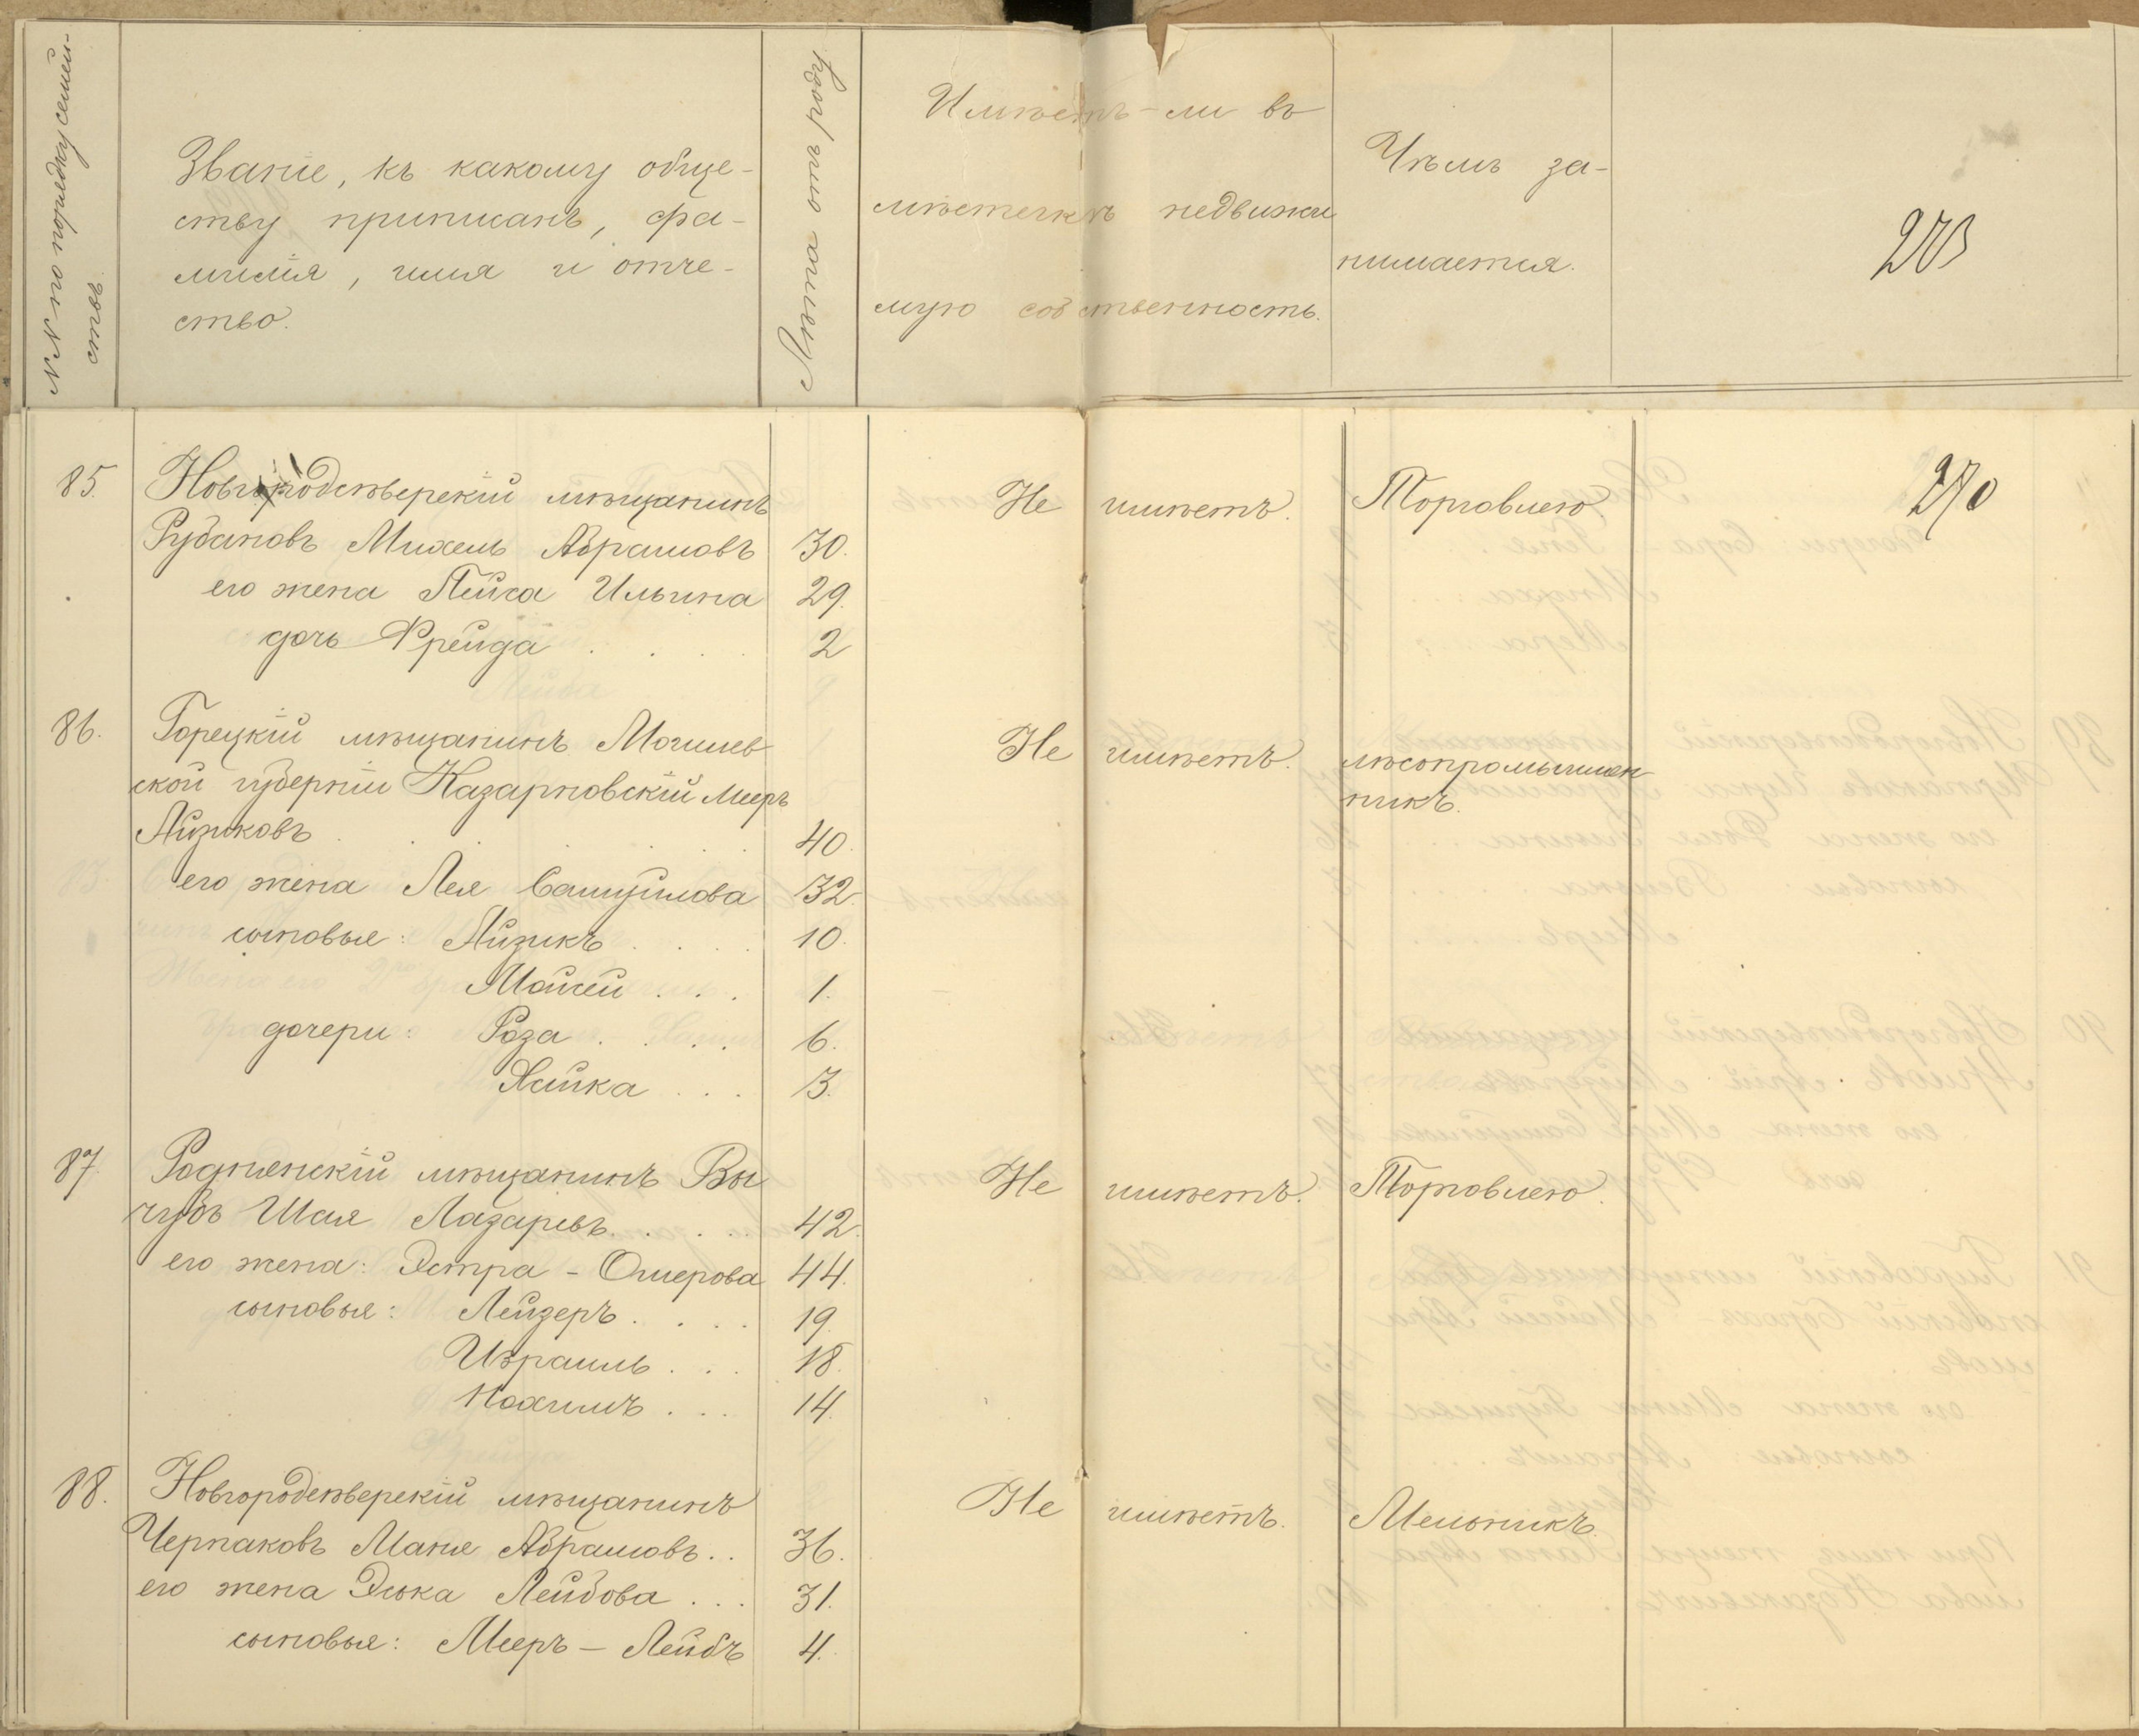 №№ по порядку семей-
ствъ.
Званіе, къ какому обще-
ству приписанъ, фа-
милія, имя и отче-
ство.
Лѣта отъ роду
Имѣетъ-ли въ
мѣстечкѣ недвижи
мую собственность.
Чѣмъ за-
нимается.
203
85. Новгородсѣверскій мѣщанинъ Не имѣетъ. Торговлею 270
Рубановъ Михель Абрамовъ 30.
его жена Пейса Ильина 29.
дочь Фрейда . . . . 2
86. Горецкій мѣщанинъ Могилев Не имѣетъ. лѣсопромышлен
ской губерніи Казарновскій Мееръ никъ.
Айзиковъ . . . . . . 40.
его жена Лея Самуйлова 32.
сыновья: Айзикъ . . . . 10.
Мойсей . . . 1.
дочери: Роза . . . . 6.
Хайка . . . 3.
87. Роднянскій мѣщанинъ Вы Не имѣетъ. Торговлею.
чубъ Шая Лазаревъ. . . . . 42.
его жена: Эстра - Ошерова 44.
сыновья: Лейзеръ . . . . 19.
Израиль . . . 18.
Нохимъ . . . 14.
88. Новгородсѣверскій мѣщанинъ Не имѣетъ. Мельникъ.
Черпаковъ Маня Абрамовъ. . 36.
его жена Эська Лейбова . . . 31.
сыновья: Мееръ - Лейбъ 4.